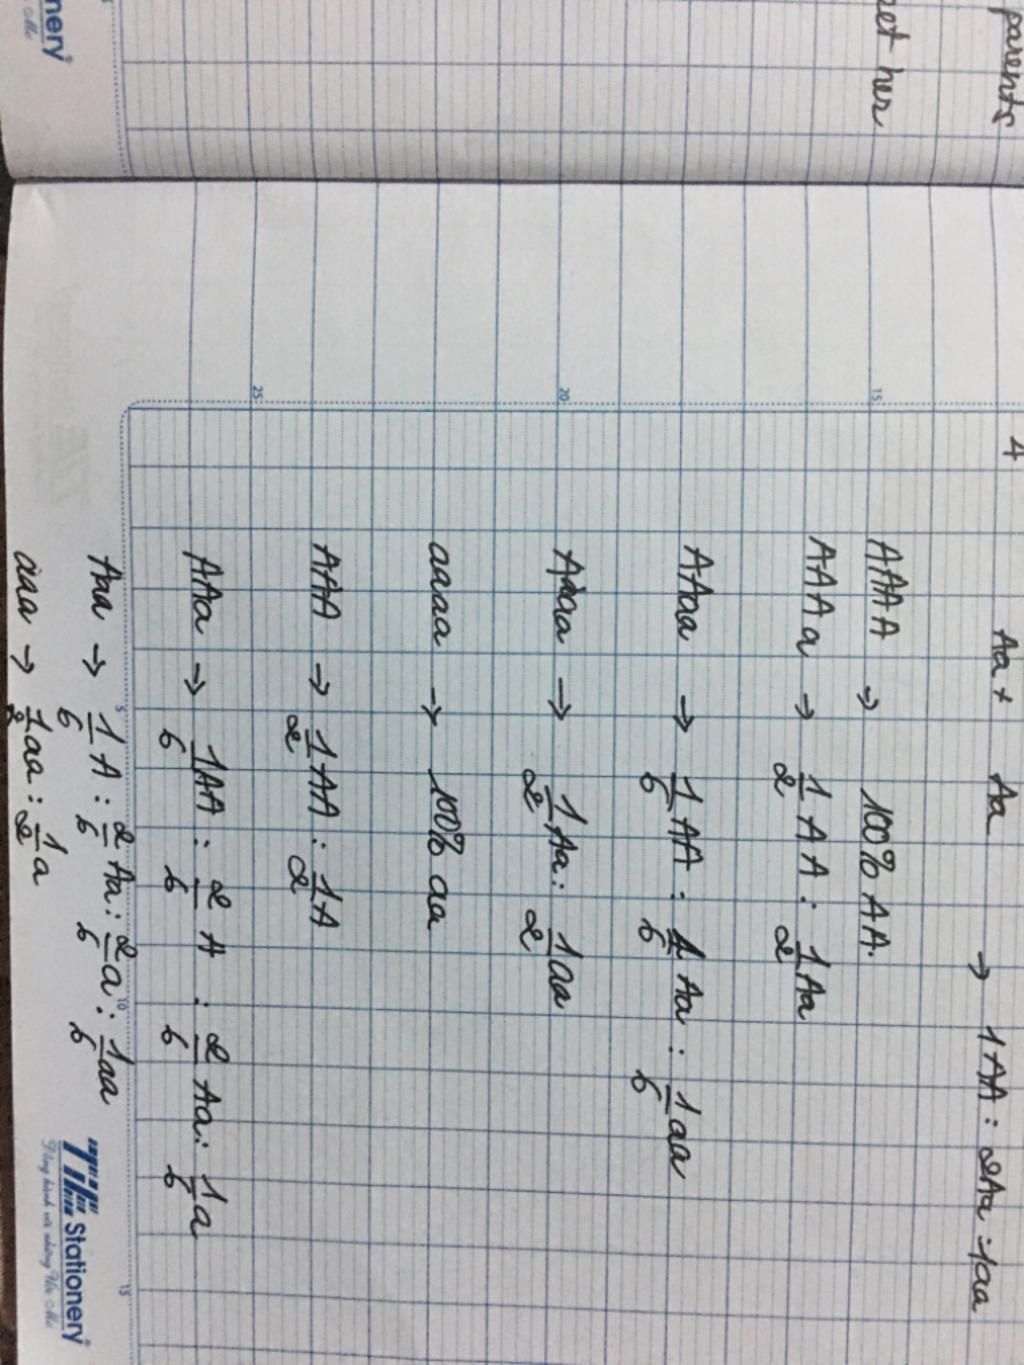 parents
her
4 Aa + Aa → 1AA : 2Aa : 1aa
15
AAAA → 100% AA.
AAAa → 1/2 AA : 1/2 Aa
AAaa → 1/6 AA : 4/6 Aa : 1/6 aa
20
Aaaa → 1/2 Aa : 1/2 aa
aaaa → 100% aa
AAA → 1/2 AA : 1/2 A
25
AAa → 1/6 AA : 2/6 A : 2/6 Aa : 1/6 a
5 10 15
Aaa → 1/6 A : 2/6 Aa : 2/6 a : 1/6 aa
aaa → 1/2 aa : 1/2 a
nery
Stationery